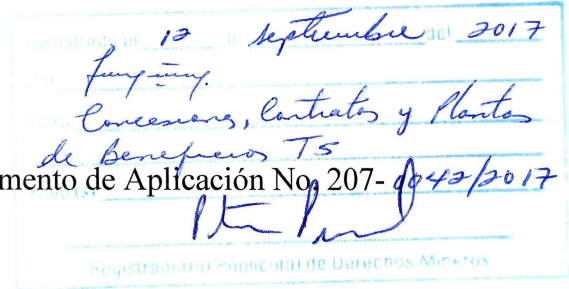 12 de septiembre del 2017
Concesiones, Contratos y Plantas
de Beneficios T5
mento de Aplicación No. 207- 0042/2017
Registrador(a) Público(a) de Derechos Mineros